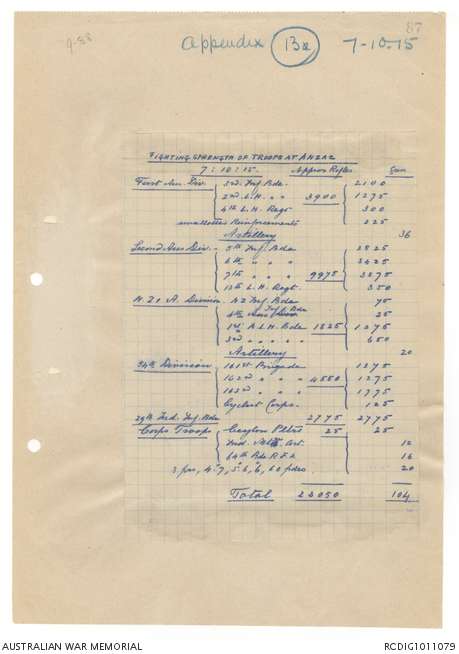 9-58
87
Appendix 13a 7-10-15
FIGHTING STRENGTH OF TROOPS AT ANZAC
7:10:15. Approx Rifles Guns
First Aus. Div. 3rd Inf. Bde. 2100
2nd L.H. " 3900 1275
4th L.H. Regt 300
unallotted Reinforcements 225
Artillery 36
Second Aus Div. 5th Inf. Bde 2825
6th " " " 2425
7th " " " 9975 3275
13th L.H. Regt. 350
N.Z & A. Division NZ Inf. Bde 75
4th Aus Inf Bde 25
1st A.L.H. Bde 1825 1275
3rd " " " " 650
Artillery 20
54th Division 161st Brigade 1275
162nd " " 4550 1275
163rd " " 1775
Cyclist Corps. 125
29th Ind. Inf. Bde 2775 2775
Corps Troops Ceylon Pltrs 25 25
Ind. Mtn Art. 12
64th Bde R.F.A. 16
3 prs, 4.7", 5", 6", 60 pdrs. 20
Total 23050 104
AUSTRALIAN WAR MEMORIAL
RCDIG1011079